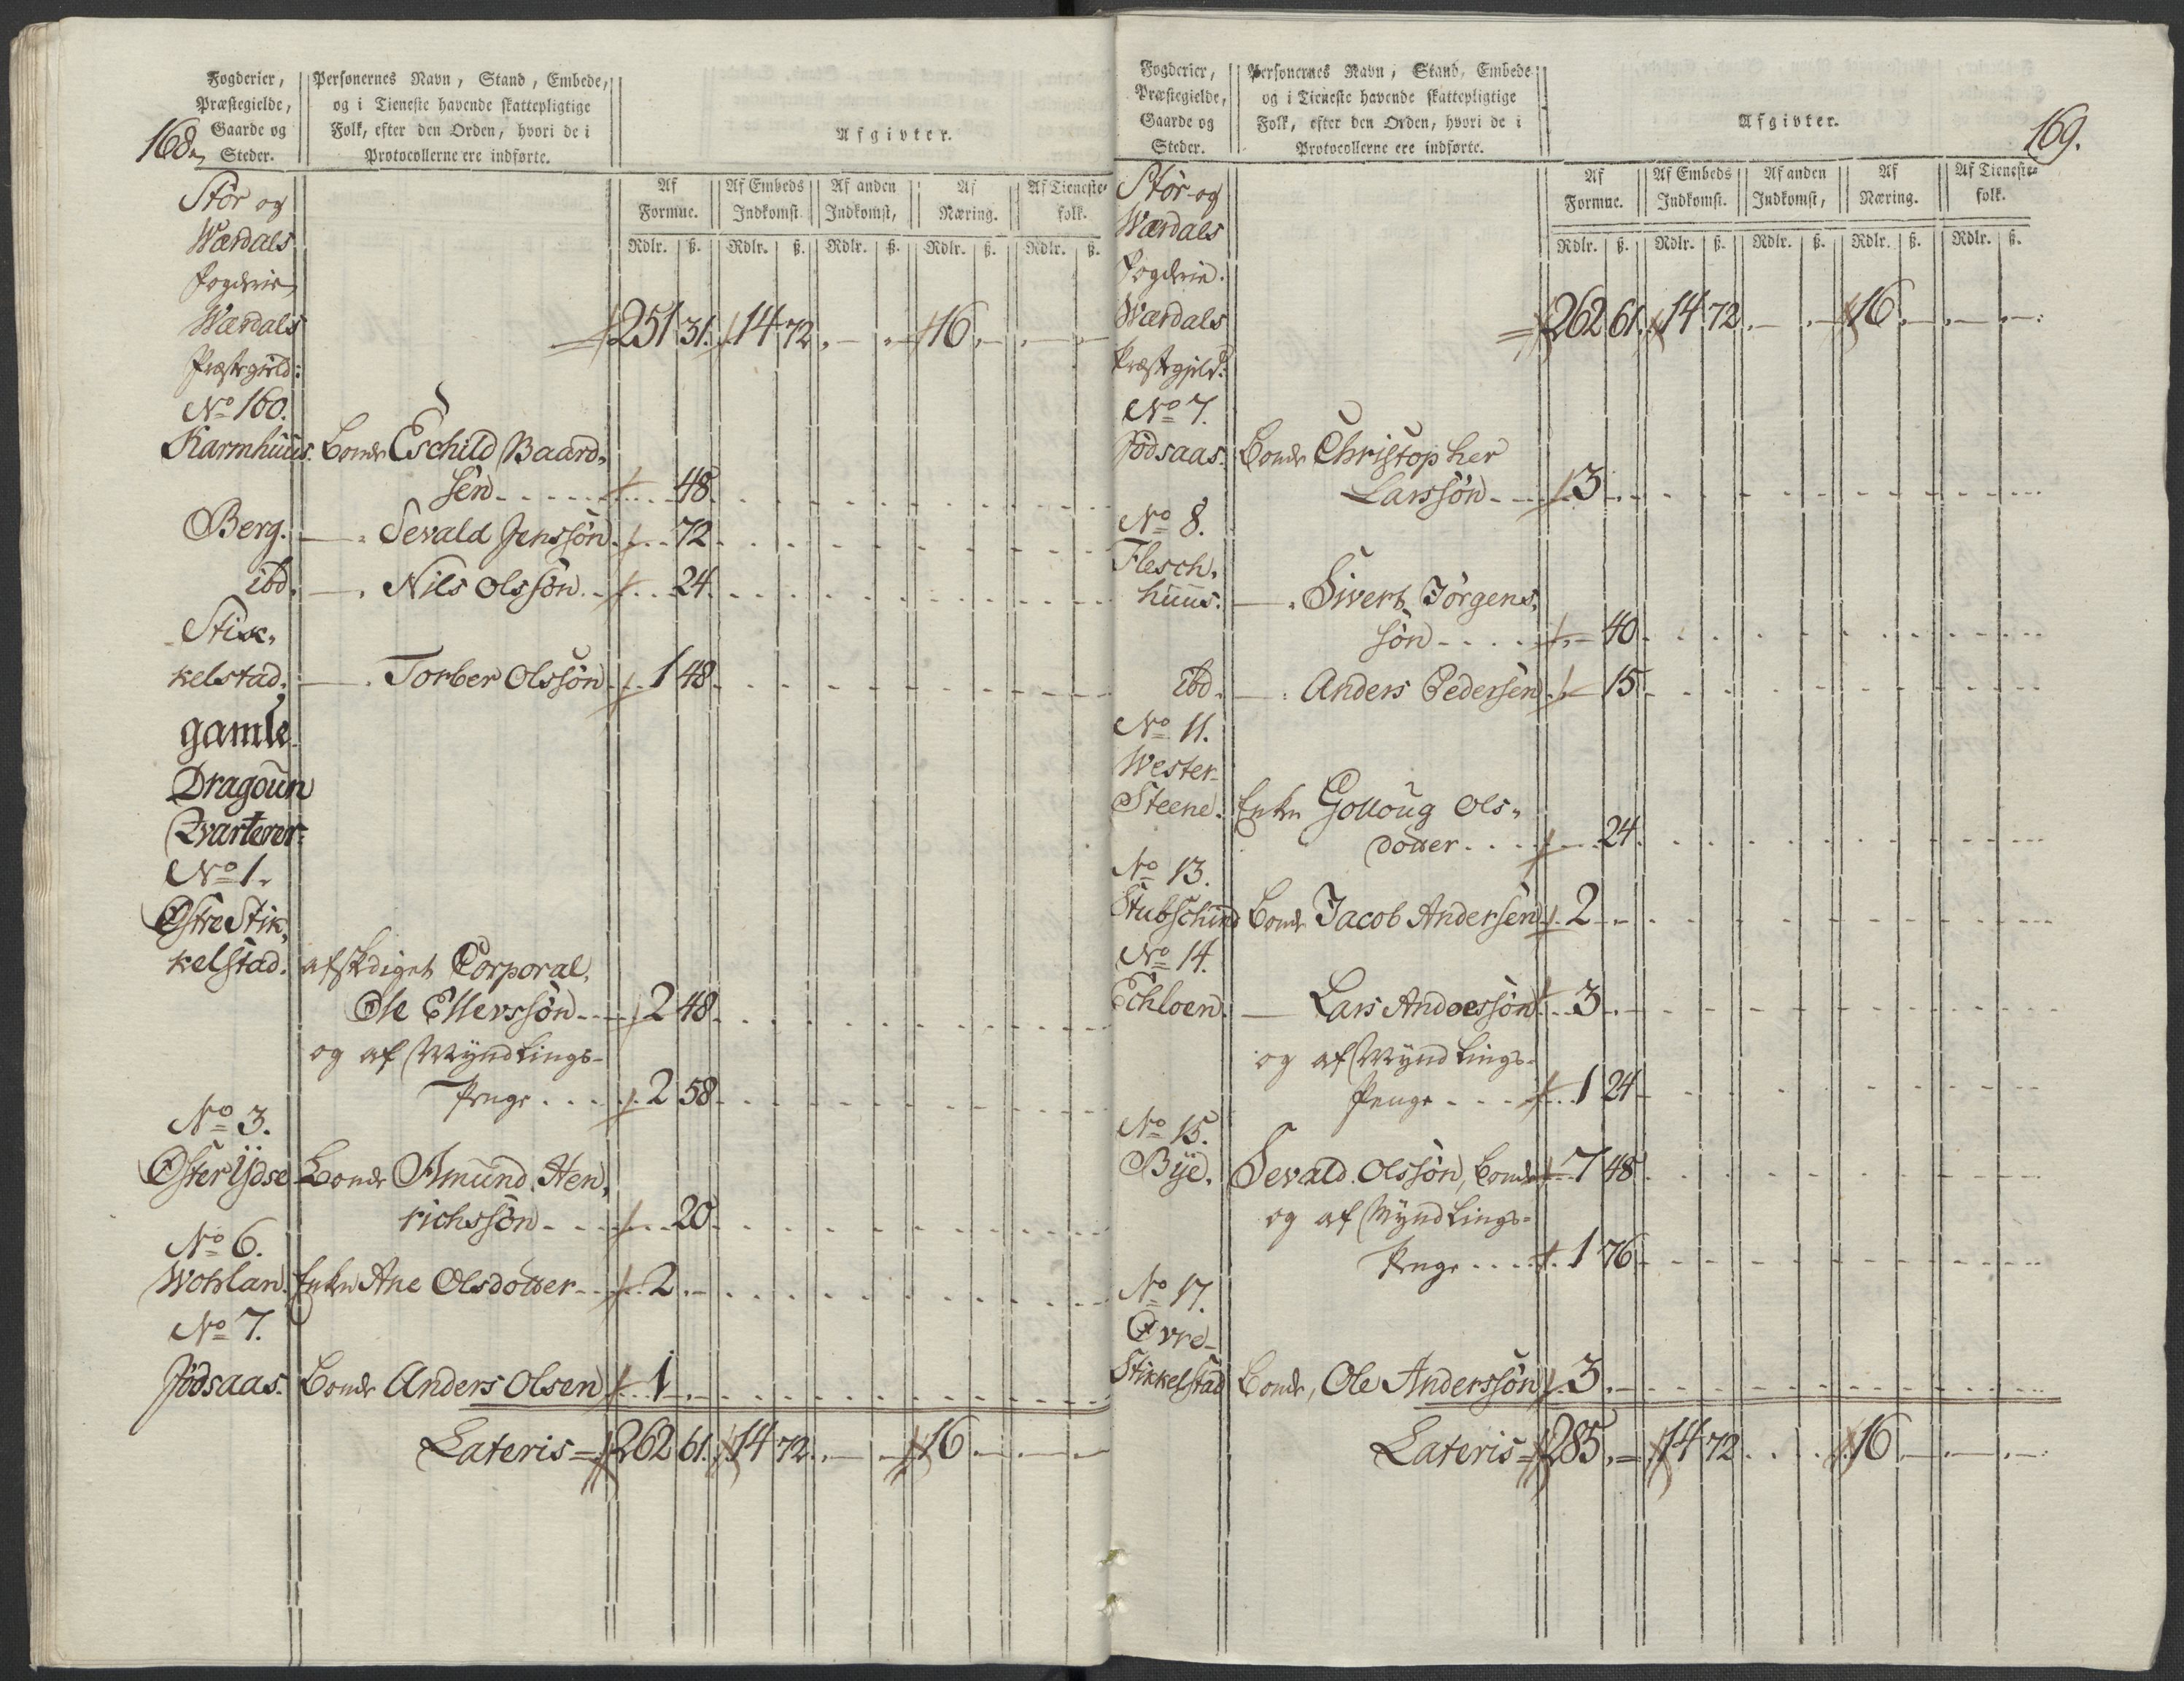 168.
Fogderier, Præstegielde, Gaarde og Steder.
Personernes Navn, Stand, Embede, og i Tieneste havende skattepligtige Folk, efter den Orden, hvori de i Protocollerne ere indførte.
Afgivter.
Af Formue. Af Embeds Indkomst. Af anden Indkomst, Af Næring. Af Tieneste-folk.
Rdlr. ß. Rdlr. ß. Rdlr. ß. Rdlr. ß. Rdlr. ß.
Stør og
Wærdals
Fogderie
Wærdals 251 31. 14 72. - - 16. - - -
Præstegield:
No 160.
Karmhuus. Bonde Eschild Baard,
sen - - - - - 48.
Berg. — . Sevald Jenssøn - 72
ibd. — . Nils Olssøn - 24.
Stik,
kelstad. — . Torber Olssøn - 1 48.
gamle
Dragoun
Qvarterer:
No 1.
Østre Stik,
kelstad. afskediget Corporal,
Ole Ellevssøn - - - 2 48.
og af Myndlings-
Penge - - - 2 58
No 3.
Øster Ydse Bonde Amund Hen,
richssøn - - - 20
No 6.
Wohlan. Enke Ane Olsdotter - - 2. -
No 7.
Jødsaas. Bonde Anders Olsen 1. -
Lateris = 262 61. 14 72. - - 16 - - -
169.
Fogderier, Præstegielde, Gaarde og Steder.
Personernes Navn, Stand, Embede og i Tieneste havende skattepligtige Folk, efter den Orden, hvori de i Protocollerne ere indførte.
Afgivter.
Af Formue. Af Embeds Indkomst. Af anden Indkomst, Af Næring. Af Tieneste-folk.
Rdlr. ß. Rdlr. ß. Rdlr. ß. Rdlr. ß. Rdlr. ß.
Stør og
Wærdals
Fogderie.
Wærdals = 262 61. 14 72. - - 16. - - -
Præstegield:
No 7.
Jødsaas. Bonde Christopher
Larssøn - - 3 - -
No 8.
Flesch,
huus. — . Sivert Jørgens,
søn - - - - 40
ibd. — : Anders Pedersen - 15
No 11.
Wester-
Steene. Enke Golloug Ols,
dotter - - - 24
No 13.
Stubschind Bonde Jacob Andersen 2 - -
No 14.
Echloen. — Lars Anderssøn 3 - -
og af Myndlings-
Penge - - - 1 24
No 15.
Bye. Sevald Olssøn, Bonde 7 48
og af Myndlings-
Penge - - - - 1 76
No 17.
Øvre
Stikkelstad Bonde, Ole Anderssøn 3. -
Lateris = 285. - 14 72 - - 16 - - -